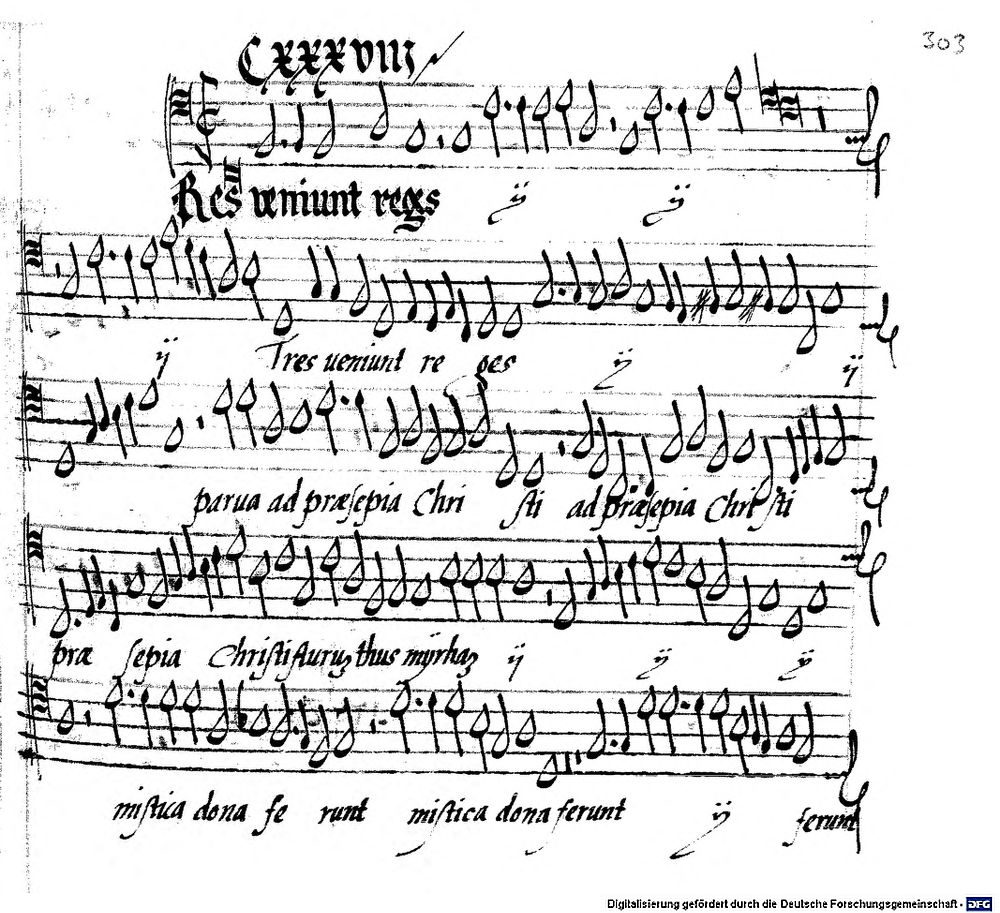 CXXXVIII
303
Res veniunt reges ij ij
ij Tres ueniunt re ges ij ij
parua ad præsepia Chri sti ad præsepia Christi
præ sepia Christi Auruʒ thus myrhaʒ ij ij ij
mistica dona fe runt mistica dona ferunt ij ferunt
Digitalisierung gefördert durch die Deutsche Forschungsgemeinschaft - DFG